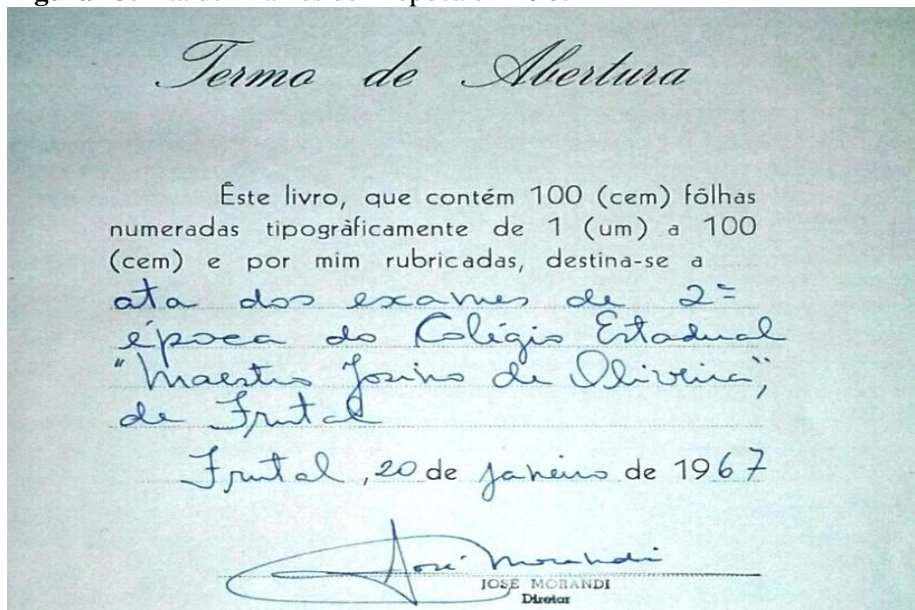 Termo de Abertura
Êste livro, que contém 100 (cem) fôlhas
numeradas tipogràficamente de 1 (um) a 100
(cem) e por mim rubricadas, destina-se a
ata dos exames de 2ª
época do Colégio Estadual
"Maestro Josino de Oliveira",
de Frutal
Frutal, 20 de janeiro de 1967
José Morandi
JOSÉ MORANDI
Diretor